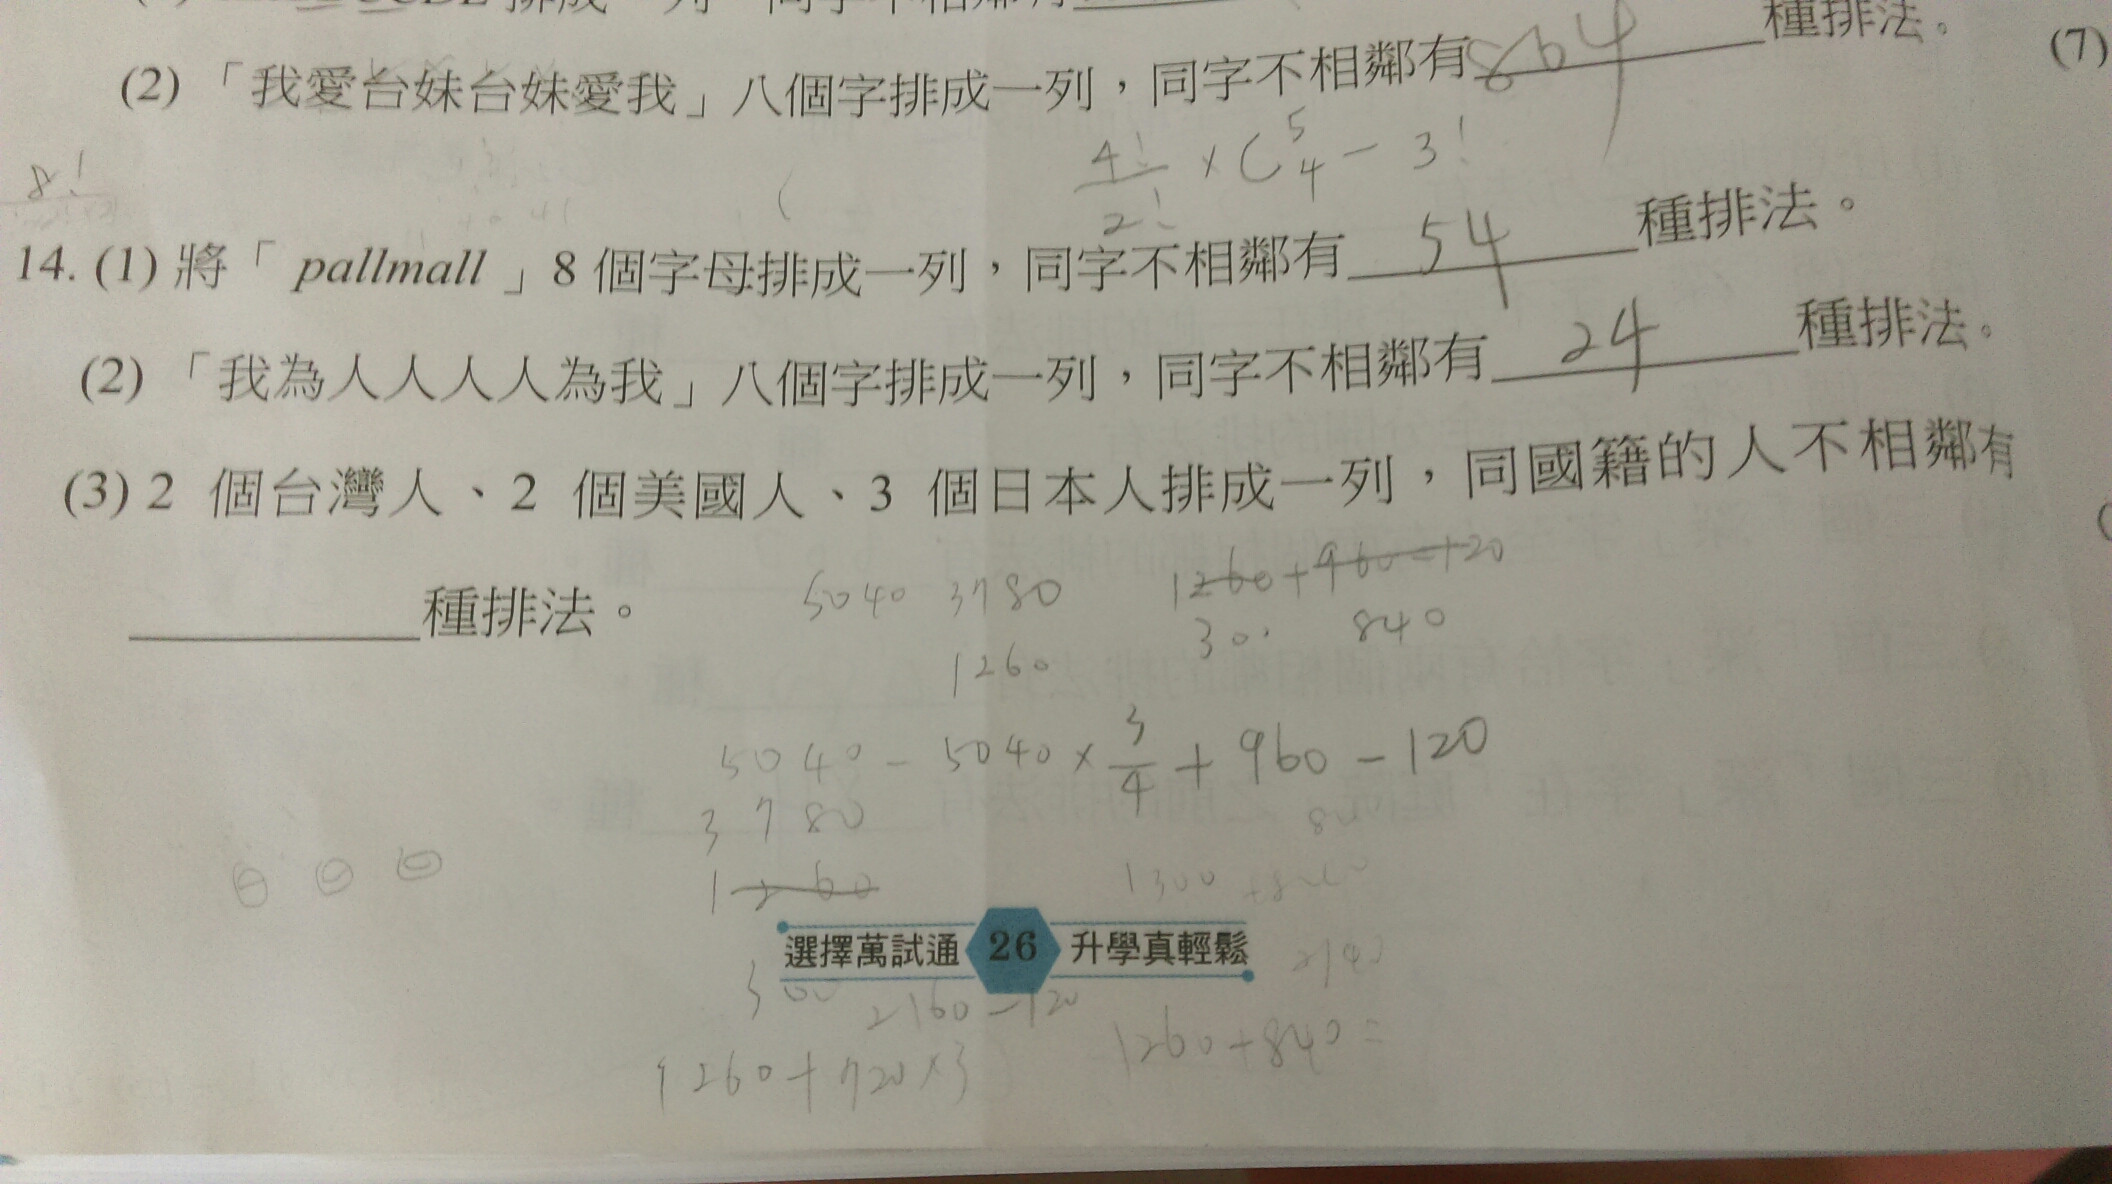 排成一列，同字不相鄰有
(2)「我愛台妹台妹愛我」八個字排成一列，同字不相鄰有 864 種排法。
(7)
8!
4!/2! × C⁵₄ − 3!
14. (1) 將「pallmall」8 個字母排成一列，同字不相鄰有 54 種排法。
(2)「我為人人人人為我」八個字排成一列，同字不相鄰有 24 種排法。
(3) 2 個台灣人、2 個美國人、3 個日本人排成一列，同國籍的人不相鄰有
種排法。
5040 3780 1260+960-120
300 840
1260
5040 - 5040 × 3/4 + 960 - 120
3780
1260
1300
選擇萬試通 26 升學真輕鬆
300
2160-120
1260+840=
1260+720×3